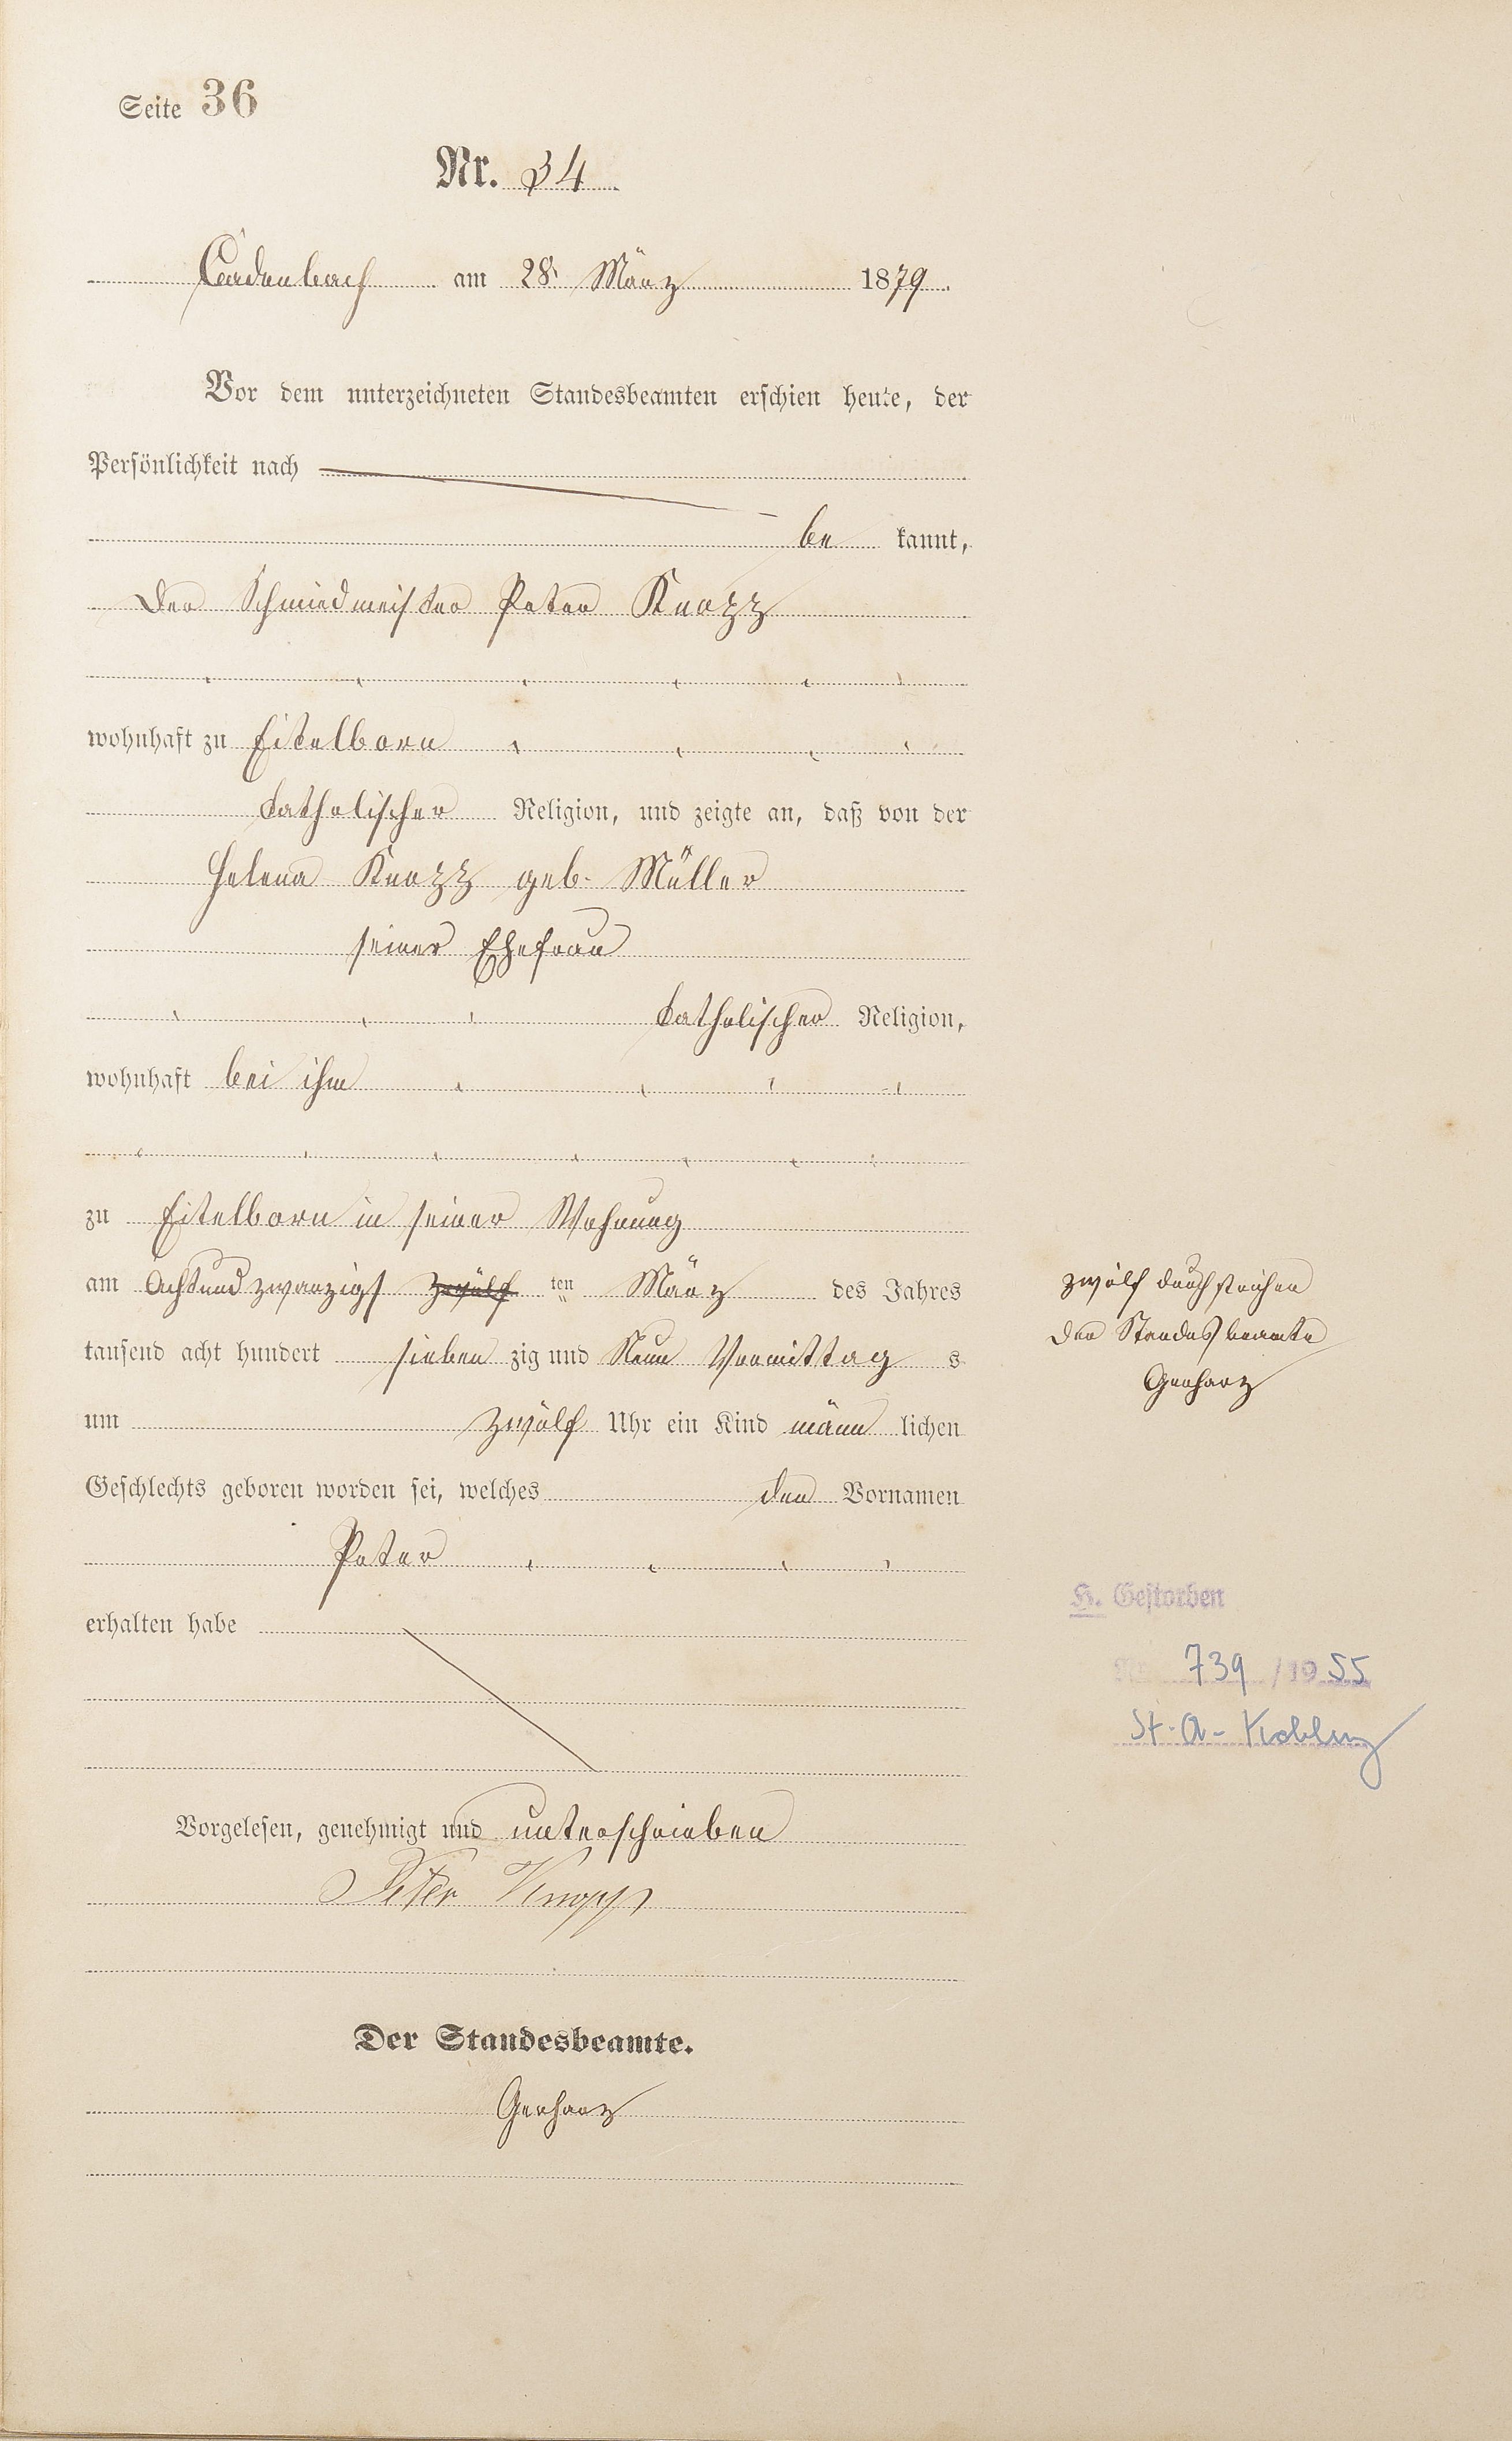 Seite 36
Nr. 34
Cadenbach am 28. März 1879.
Vor dem unterzeichneten Standesbeamten erschien heute, der
Persönlichkeit nach
be kannt,
Der Schmiedmeister Peter Knopp
wohnhaft zu Eitelborn
katholischer Religion, und zeigte an, daß von der
Helena Knopp geb. Müller
seiner Ehefrau
katholischer Religion,
wohnhaft bei ihm
zu Eitelborn in seiner Wohnung
am Achtundzwanzigs zwölf ten März des Jahres
tausend acht hundert sieben zig und Neun Vormittag s
um zwölf Uhr ein Kind männ lichen
Geschlechts geboren worden sei, welches den Vornamen
Peter
erhalten habe
Vorgelesen, genehmigt und unterschrieben
Peter Knopp
Der Standesbeamte.
Gerharz
zwölf durchstrichen
Der Standesbeamte
Gerharz
H. Gestorben
Nr. 739 / 1955
St. A - Koblenz